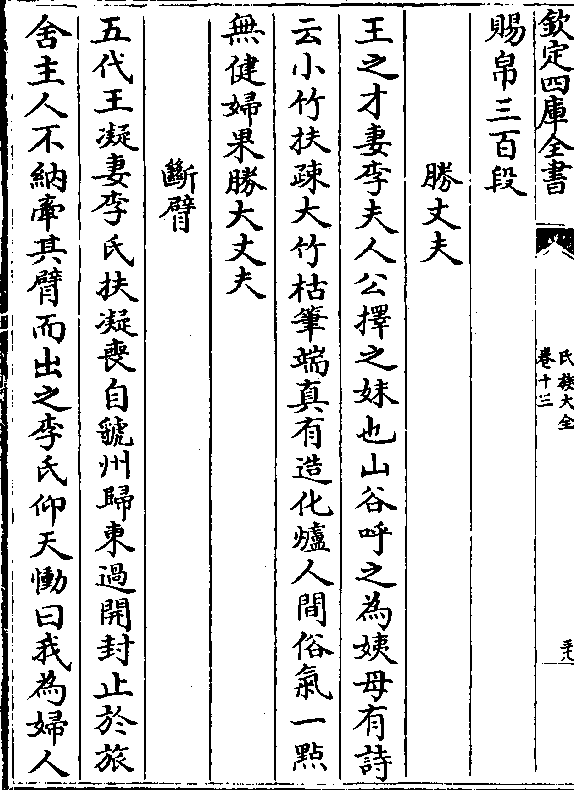 欽定四庫全書
氏族大全
卷十三
賜帛三百段
勝丈夫
王之才妻李夫人公擇之妹也山谷呼之為姨母有詩
云小竹扶疎大竹枯筆端真有造化爐人間俗氣一點
無健婦果勝大丈夫
斷臂
五代王凝妻李氏扶凝喪自虢州歸東過開封止於旅
舍主人不納牽其臂而出之李氏仰天慟曰我為婦人